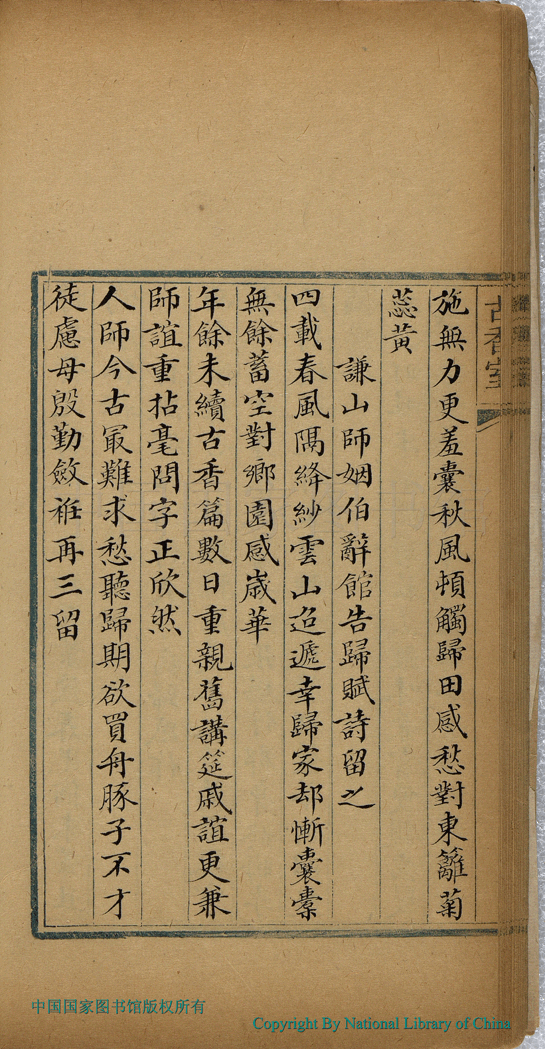 古香室
施無力更羞囊秋風頓觸歸田感愁對東籬菊
蕊黃
謙山師姻伯辭館告歸賦詩留之
四載春風隔絳紗雲山迢遞幸歸家却慚囊橐
無餘蓄空對鄉園感歲華
年餘未續古香篇數日重親舊講筵戚誼更兼
師誼重拈毫問字正欣然
人師今古最難求愁聽歸期欲買舟豚子不才
徒慮母殷勤斂袵再三留
中国国家图书馆版权所有
Copyright By National Library of China